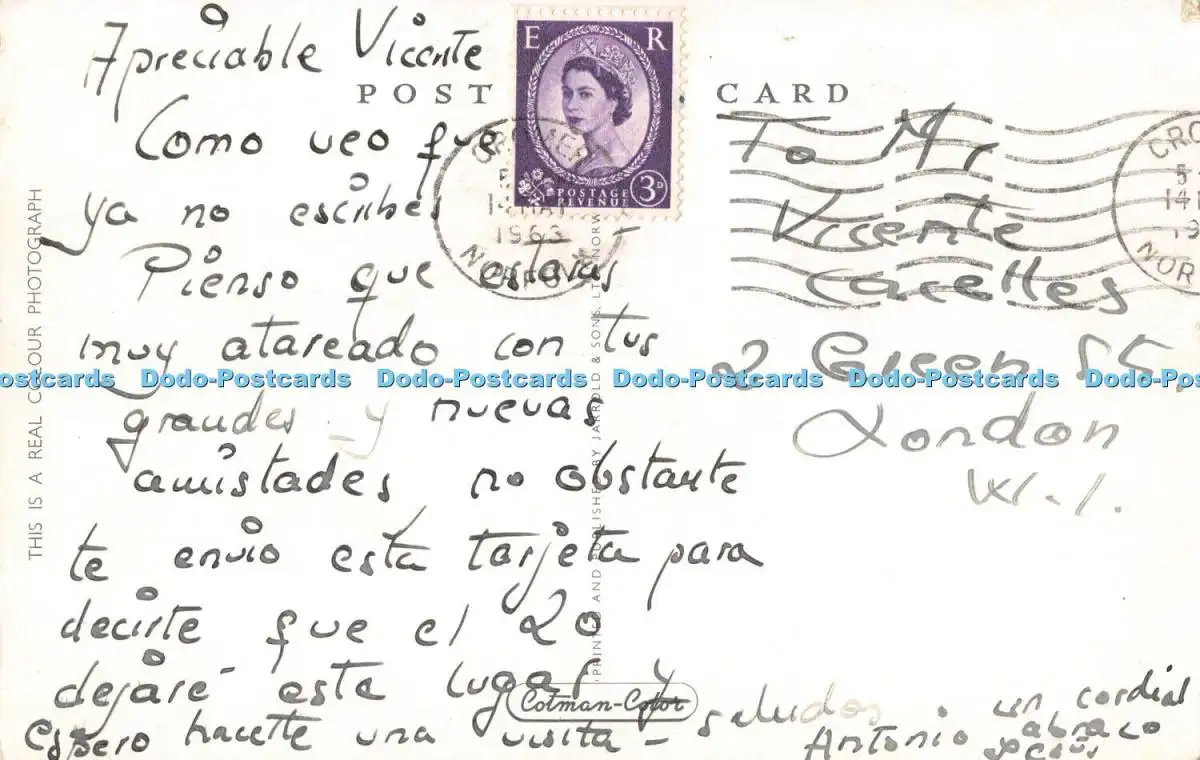 Apreciable Vicente
POST CARD
Como veo que
ya no escribes
Pienso que estaras
muy atareado con tus
grandes y nuevas
amistades no obstante
te envio esta tarjeta para
decirte que el 20
dejare esta lugar y
espero hacerte una visita -
saludos . un cordial
abraço
Antonio Jesús
To Mr
Vicente
Cacelles
2 Green St.
London
W.1.
E R
POSTAGE
REVENUE
3D
CROMER
5
14 MAY
1963
NORFOLK
CRO
5
14
19
NOR
THIS IS A REAL COLOUR PHOTOGRAPH
PRINTED AND PUBLISHED BY JARROLD & SONS LTD NORW
Cotman-Color
ostcards Dodo-Postcards Dodo-Postcards Dodo-Postcards Dodo-Postcards Dodo-Postcards